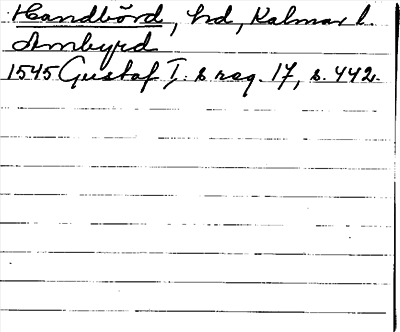 Handbörd, hd, Kalmar l.
Ambyrd
1545 Gustaf I:s reg. 17, s. 442.